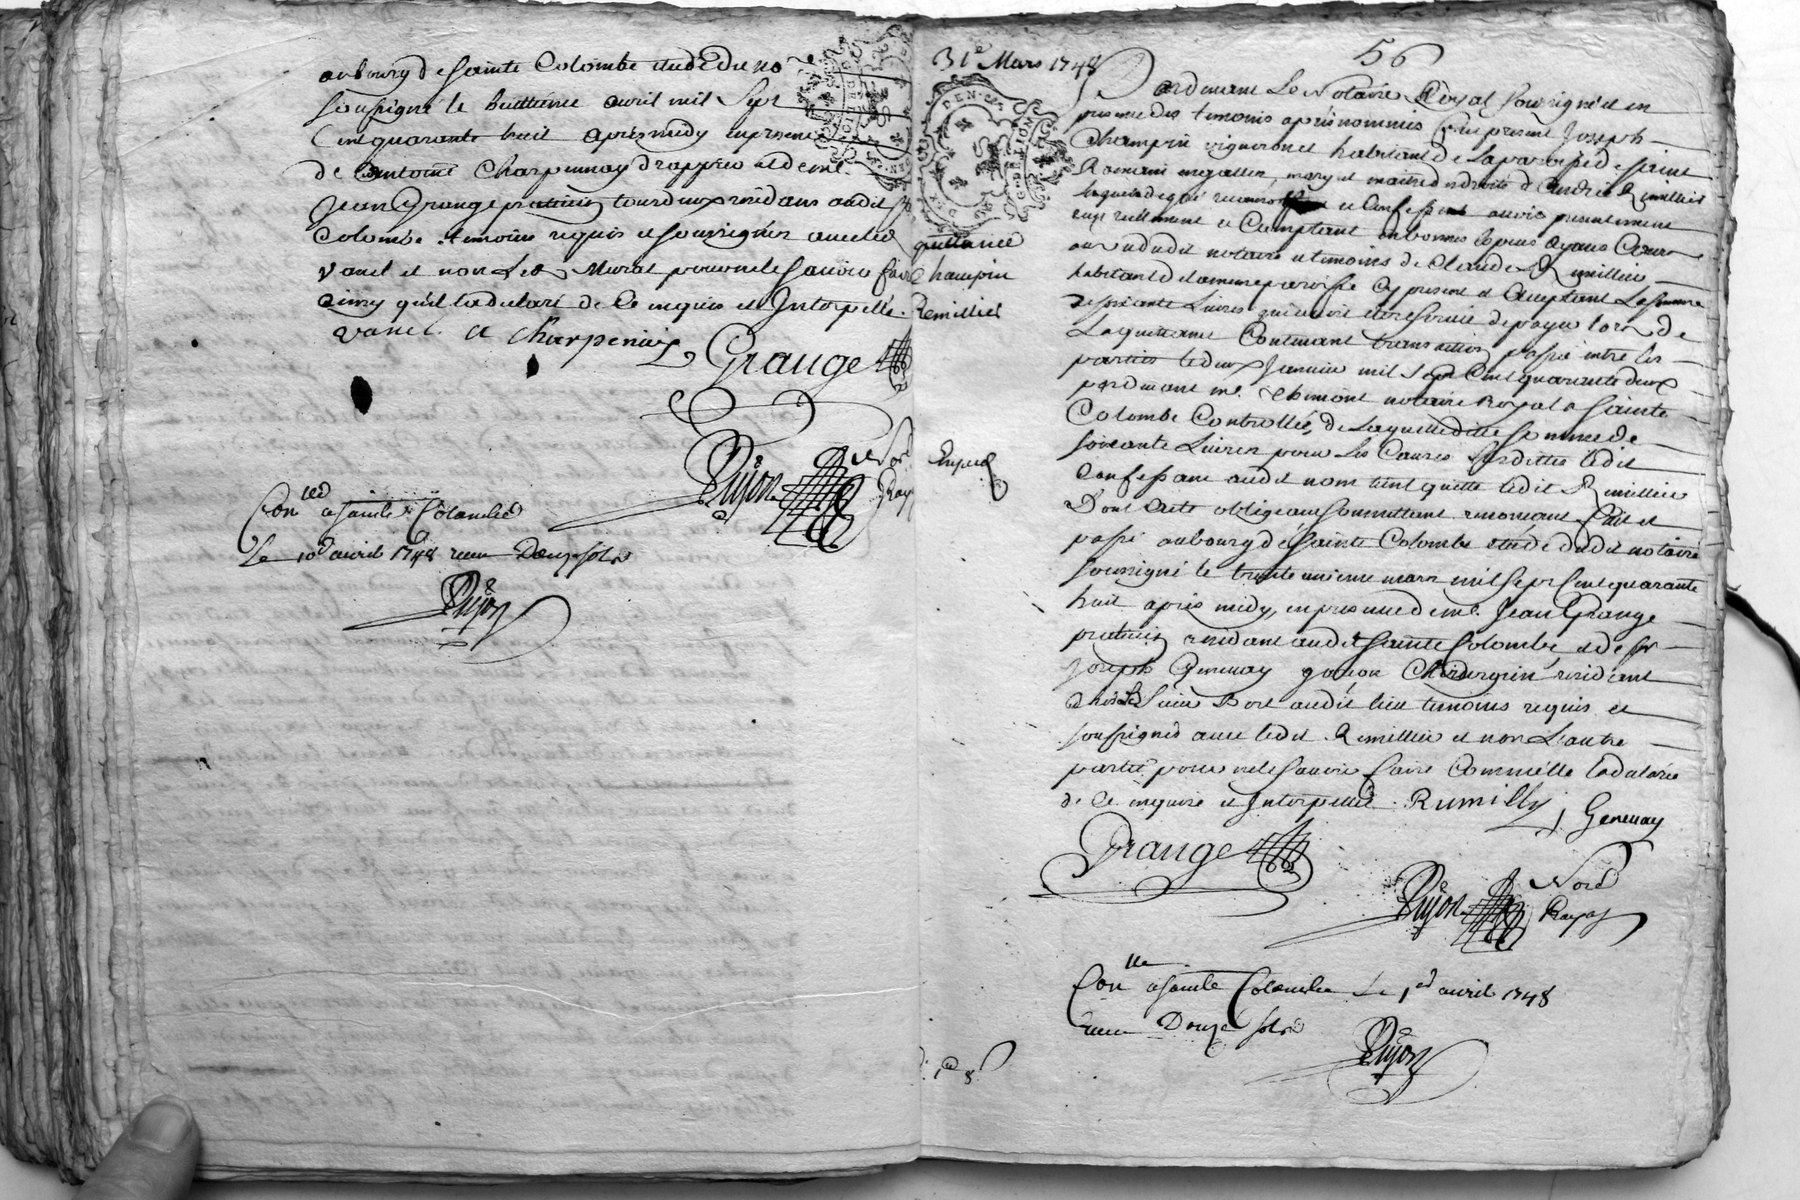 aubourg de Sainte Colombe etude du no
soussigné le huittieme avril mil Sept
Cent quarante huit apres midy en presence
de Antoine Charpennay drappier et de me.
Jean Grange praticien tourdeux residans audit
Colombe temoins requis et soussignés avec led
vanel et non led Murat pour ne le sçavoir faire
ainsy qu'il la declaré de ce enquis et Interpellé.
vanel A Charpenay
Grange
Dujon
No.re
Roya
Con.lled a Sainte Colombe
Le 10.e avril 1748 receu Douze sols
Dujon
31e Mars 1748
quittance
Champin
Remillieu
Exped
56
Pardevant Le Notaire Royal soussigné et en
presence des temoins apres nommés fut present Joseph
Champin vigneron et habitant de la paroisse de Saint
Romain en gallier, mary et maitre des droits d'Andrée Remillieu
lequel de gré reconnoit et Confesse avoir presentement
eu et reellement et Comptant en bonnes especes ayans Cours
au vu dudit notaire et temoins de Claude Remillieu
habitant de la meme paroisse cy present et acceptant La somme
de soixante Livres qui avoit été reservée de payer lors de
La quittance Contenant transaction passé entre les
parties le deux Janvier mil Sept Cent quarante deux
pardevant me. Thimont notaire Royal a Sainte
Colombe Controllée, de laquelle ditte somme de
soixante Livres pour les Causes susdittes ledit
Confessant audit nom tient quitte ledit Remillieu
Dont acte obligeant soumettant renonceant fait et
passé aubourg de Sainte Colombe etude dudit notaire
soussigné le trente unieme mars mil Sept Cent quarante
huit apres midy, en presence de me. Jean Grange
praticien residant audit Sainte Colombe et de sr
Joseph Genevay garcon Chirurgien residant
chés le sieur Bort audit lieu temoins requis et
soussignés avec ledit Remillieu et non L'autre
partie pour ne le sçavoir faire Comme elle la declarée
de ce enquise et Interpellée. Rumilly
J Genevay
Grange
Dujon
No.re
Royal
Con.lle a Sainte Colombe Le 1.er avril 1748
receu Douze sols
Dujon